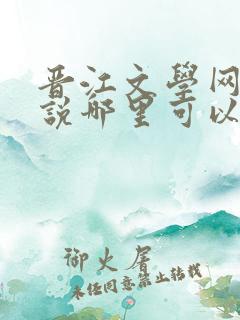 晋江文學网
說哪里可以
御火屠
未经同意禁止转载